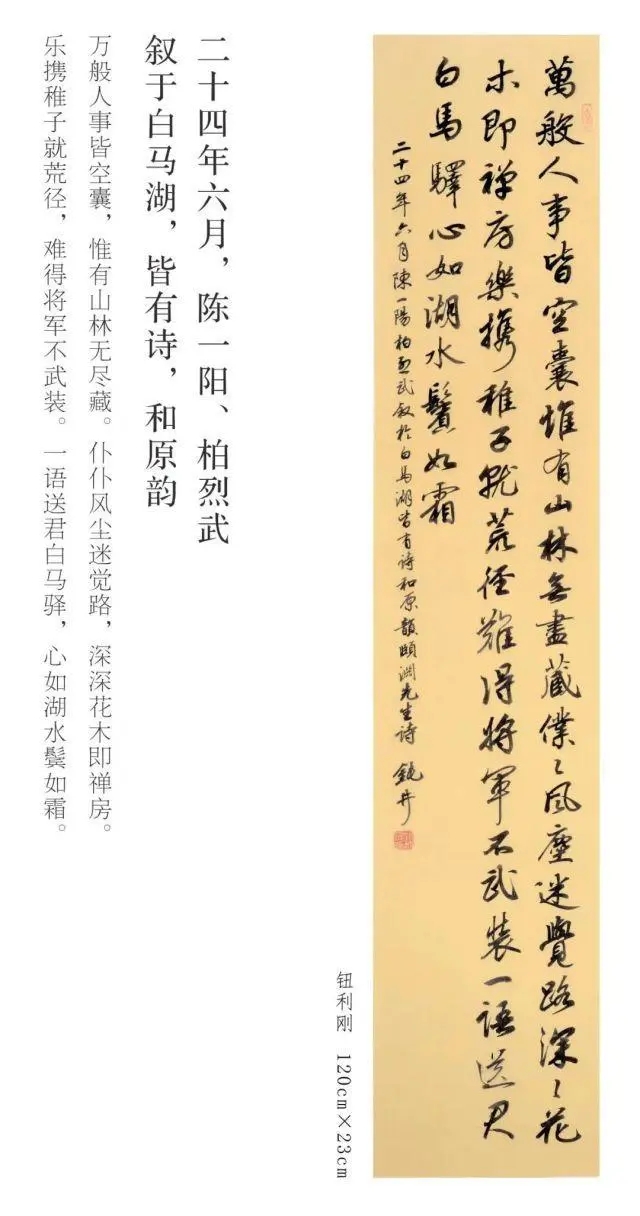 萬般人事皆空囊惟有山林無盡藏僕〻風塵迷覺路深〻花
木即禅房樂携稚子就荒徑難得將軍不武裝一語送君
白馬驛心如湖水鬢如霜
二十四年六月陳一陽柏烈武叙於白馬湖皆有诗和原韻頤淵先生诗
钮利刚 120cm×23cm
二十四年六月，陈一阳、柏烈武
叙于白马湖，皆有诗，和原韵
万般人事皆空囊，惟有山林无尽藏。仆仆风尘迷觉路，深深花木即禅房。
乐携稚子就荒径，难得将军不武装。一语送君白马驿，心如湖水鬓如霜。